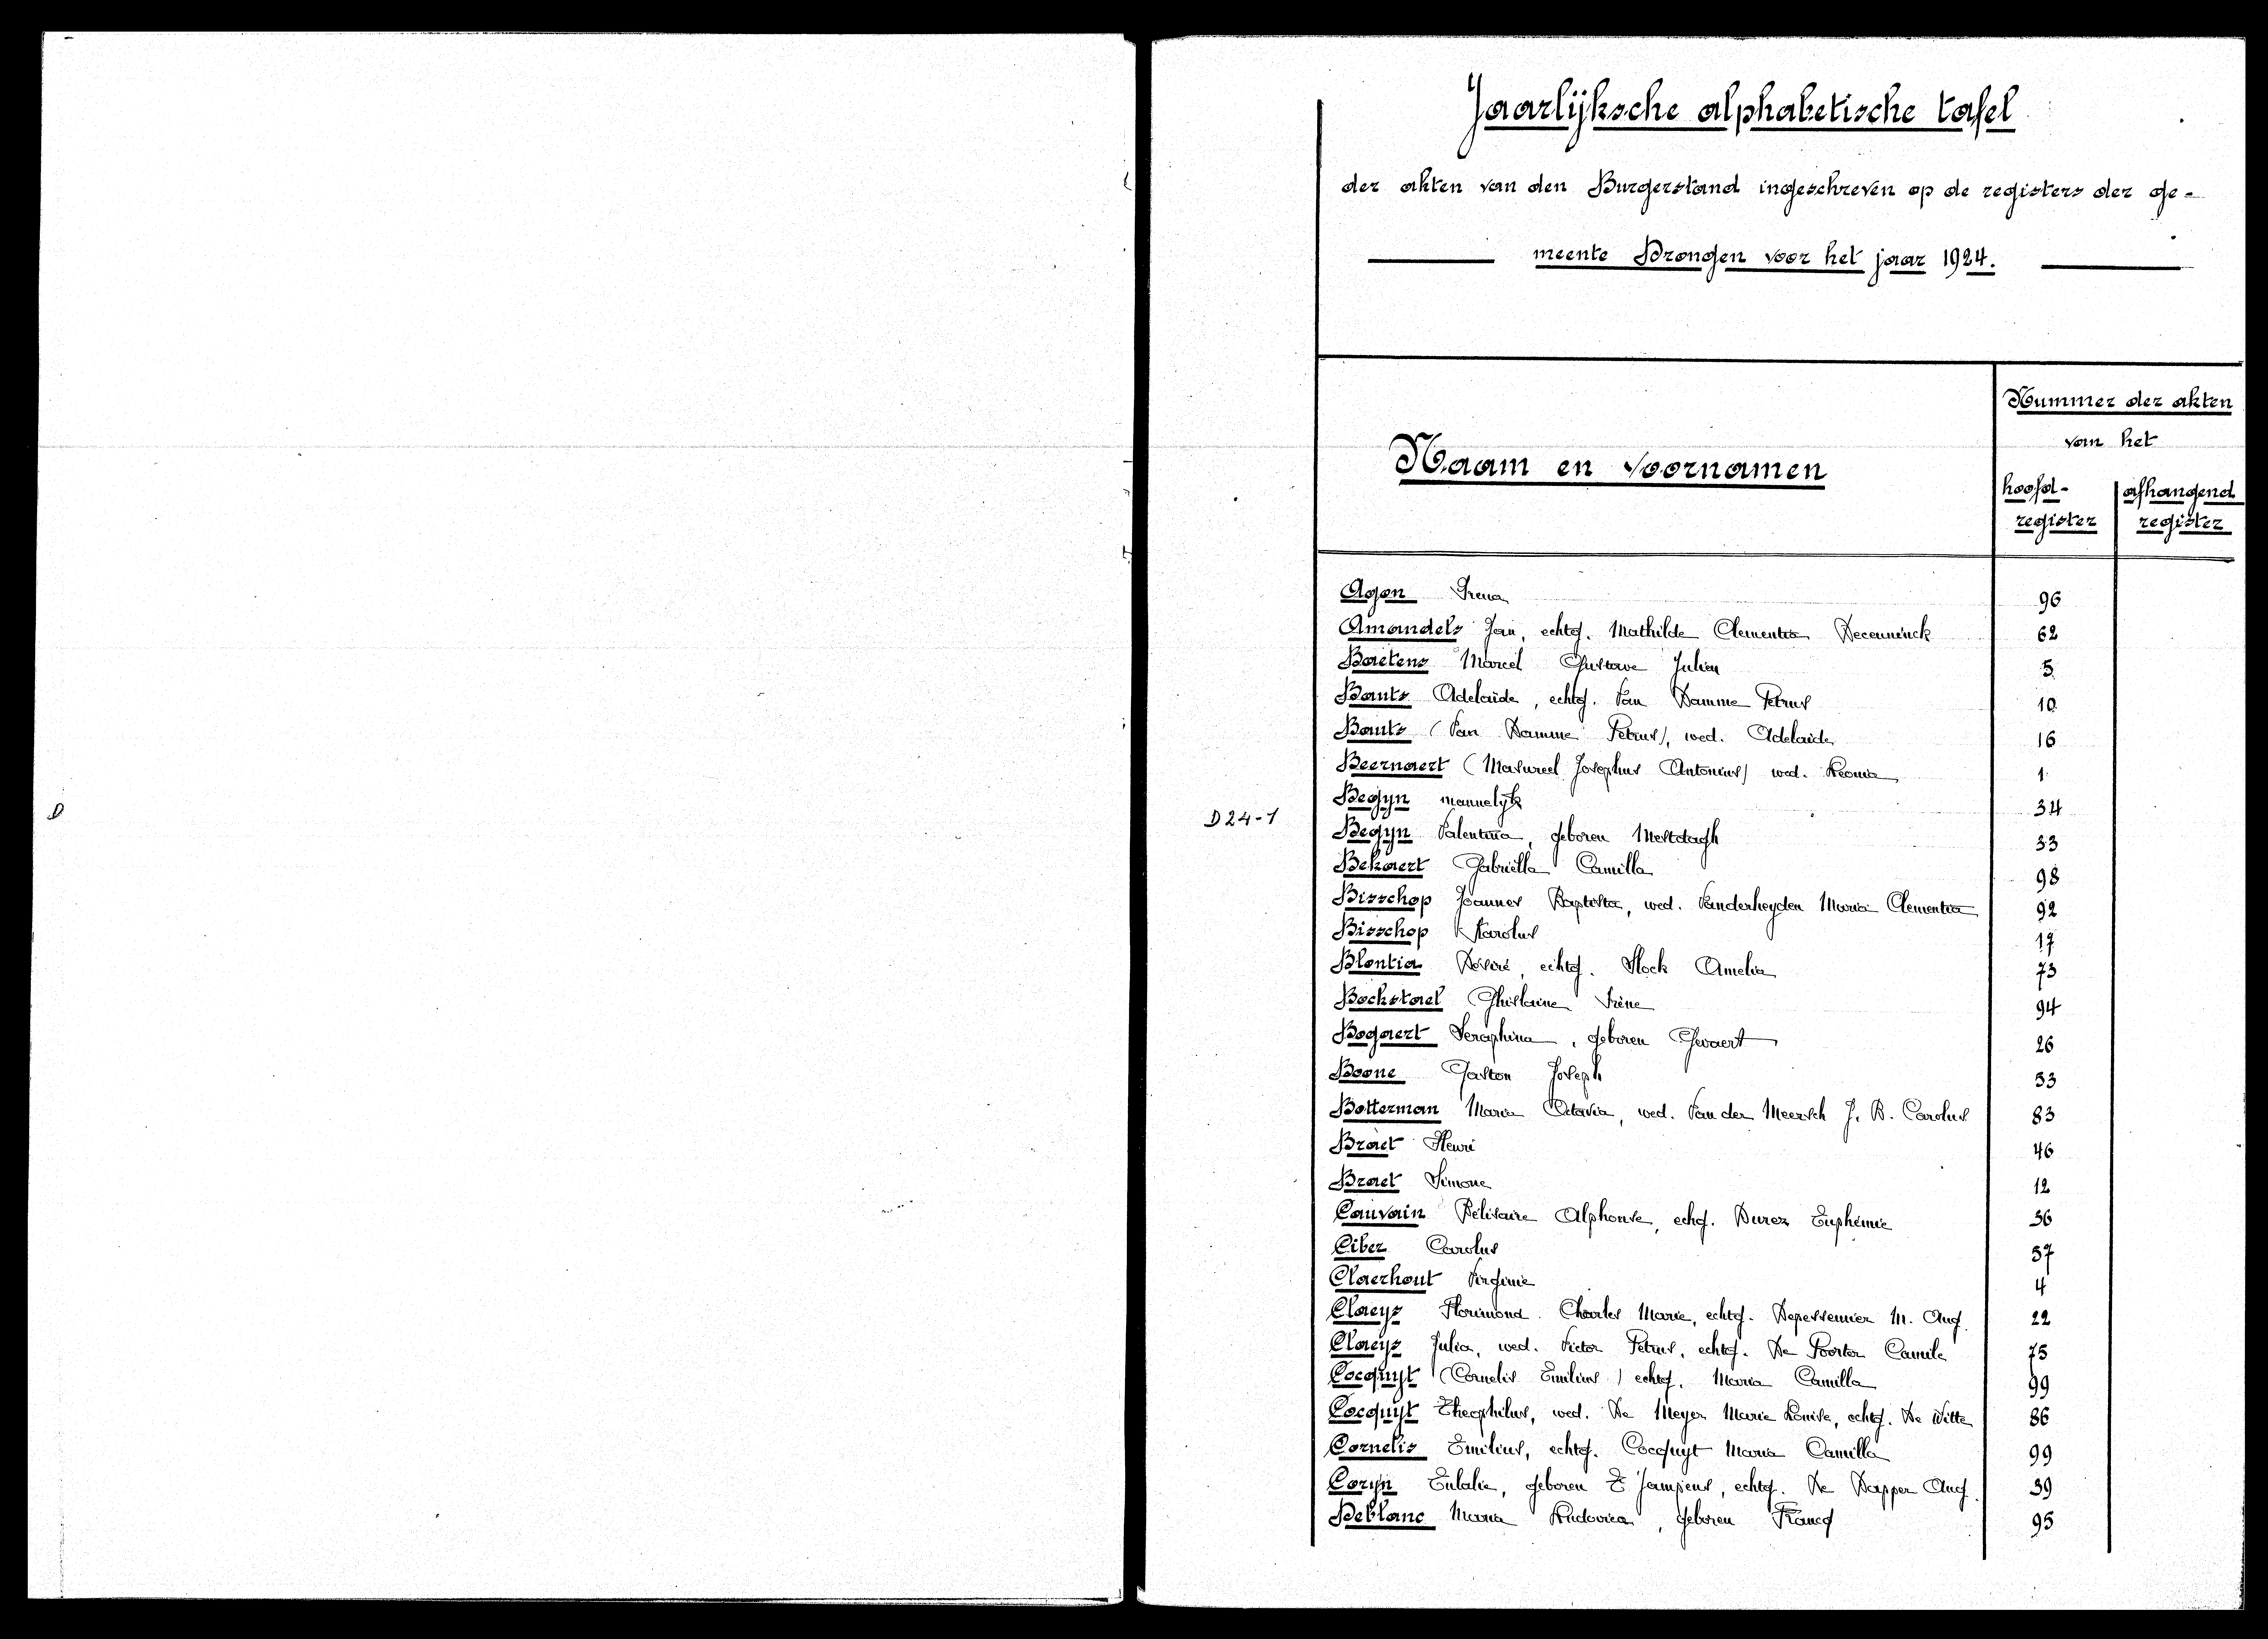 Jaarlijksche alphabetische tafel
der akten van den Burgerstand ingeschreven op de registers der ge-
meente Drongen voor het jaar 1924.
Naam en voornamen
Nummer der akten
van het
hoofd-
register
afhangend
register
D
D24-1
Agon Irena 96
Amandels Jan, echtg. Mathilde Clementia Deceuninck 62
Baetens Marcel Gustave Julien 5
Bauts Adelaïde, echtg. Van Damme Petrus 10
Bauts (Van Damme Petrus), wed. Adelaide 16
Beernaert (Masureel Josephus Antonius) wed. Leonia 1
Begyn mannelyk 34
Begyn Valentina, geboren Mestdagh 33
Bekaert Gabriëlla Camilla 98
Bisschop Joannes Baptista, wed. Vanderheyden Maria Clementia 92
Bisschop Karolus 17
Blontia Désiré, echtg. Stock Amelia 73
Bockstael Ghislaine Irène 94
Bogaert Seraphina, geboren Gevaert 26
Boone Gaston Joseph 53
Botterman Maria Octavia, wed. Van der Meersch J. B. Carolus 83
Braet Henri 46
Braet Simone 12
Cauvain Bélisaire Alphonse, echg. Durez Euphémie 36
Ciber Carolus 57
Claerhout Virginie 4
Claeys Florimond Charles Marie, echtg. Depessemier M. Aug. 22
Claeys Julia, wed. Victor Petrus, echtg. De Poorter Camile 75
Cocquyt (Cornelis Emilius) echtg. Maria Camilla 99
Cocquyt Theophilus, wed. De Meyer Marie Louise, echtg. De Witte 86
Cornelis Emilius, echtg. Cocquyt Maria Camilla 99
Coryn Eulalie, geboren T' Jampens, echtg. De Dapper Aug. 39
Deblanc Maria Ludovica, geboren Francq 95